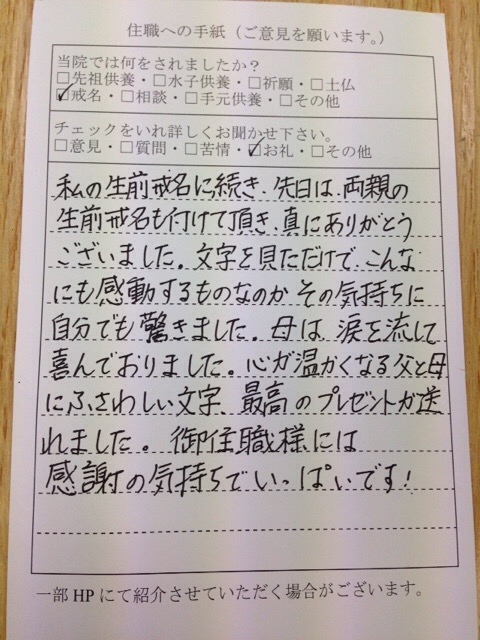 住職への手紙（ご意見を願います。）
当院では何をされましたか？
□先祖供養・□水子供養・□祈願・□土仏
☑戒名・□相談・□手元供養・□その他
チェックをいれ詳しくお聞かせ下さい。
□意見・□質問・□苦情・☑お礼・□その他
私の生前戒名に続き、先日は、両親の
生前戒名も付けて頂き、真にありがとう
ございました。文字を見ただけで、こんな
にも感動するものなのか その気持ちに
自分でも驚きました。母は、涙を流して
喜んでおりました。心が温かくなる父と母
にふさわしい文字、最高のプレゼントが送
れました。御住職様には
感謝の気持ちでいっぱいです！
一部HPにて紹介させていただく場合がございます。